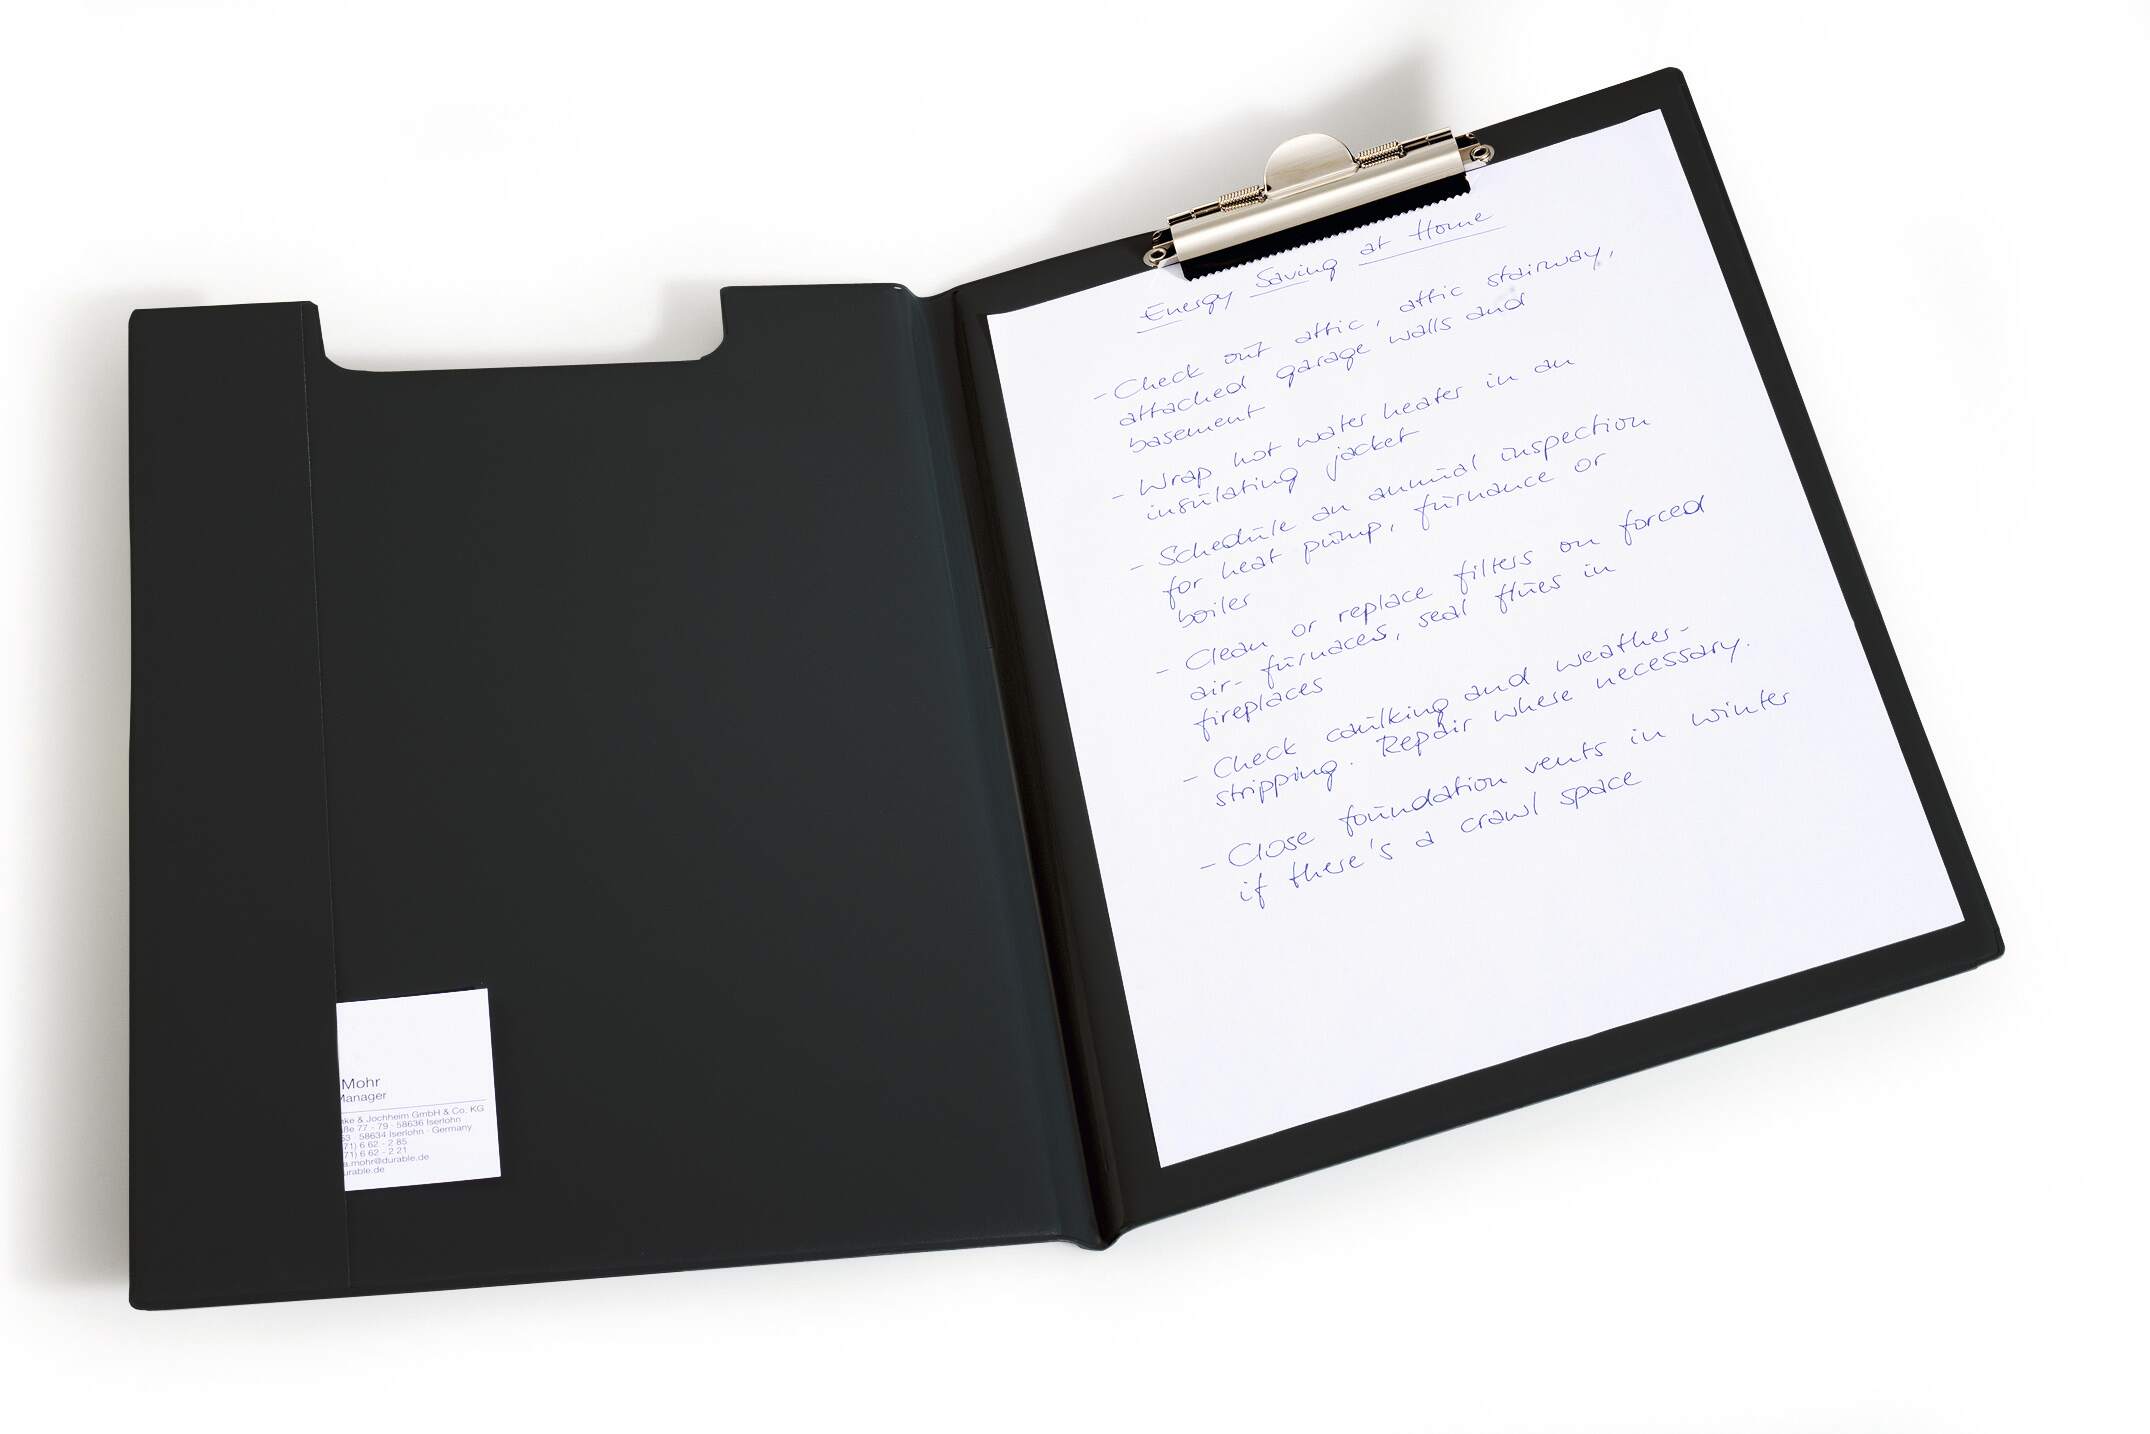 Mohr
Manager
ke & Jochheim GmbH & Co. KG
ße 77 - 79 · 58636 Iserlohn
63 · 58634 Iserlohn · Germany
71) 6 62 - 2 85
71) 6 62 - 2 21
a.mohr@durable.de
urable.de
Energy Saving at Home
- Check out attic, attic stairway,
attached garage walls and
basement
- Wrap hot water heater in an
insulating jacket
- Schedule an annual inspection
for heat pump, furnance or
boiler
- Clean or replace filters on forced
air-furnaces, seal flues in
fireplaces
- Check caulking and weather-
stripping. Repair where necessary.
- Close foundation vents in winter
if there's a crawl space